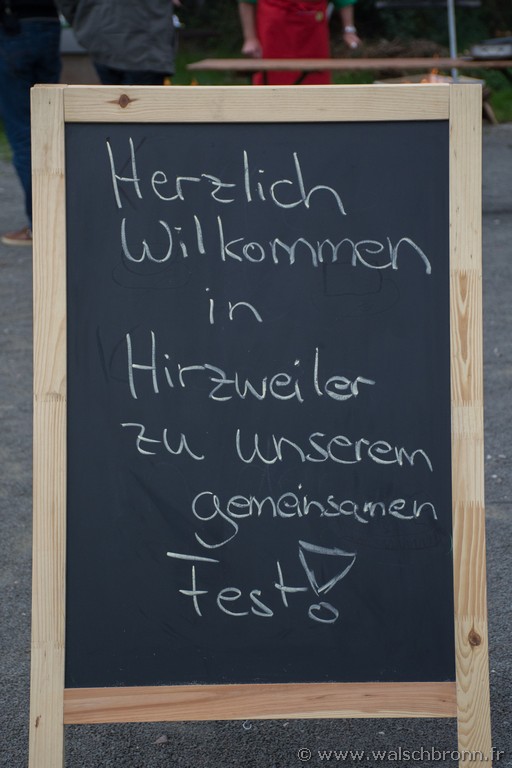 Herzlich
Willkommen
in
Hirzweiler
zu unserem
gemeinsamen
Fest!
© www.walschbronn.fr